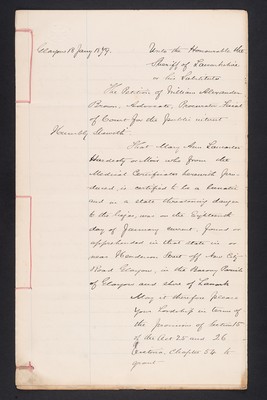 Glasgow 18 Jany 1899. Unto the Honourable the
Sheriff of Lanarkshire
or his Substitute
The Petition of William Alexander
Brown, Advocate, Procurator Fiscal
of Court for the public interest
Humbly Sheweth
That Mary Ann
or who from the
Medical Certificates herewith pro-
duced, is certified to be a lunatic
and in a state threatening danger
to the lieges, was on the Eighteenth
day of January current, found or
apprehended in that state in or
near Henderson Street off New City
Road Glasgow, in the Barony Parish
of Glasgow and shire of Lanark
May it therefore please
your Lordship in terms of
the provisions of Section 15
of the Act 25 and 26
Victoria, Chapter 54 to
grant